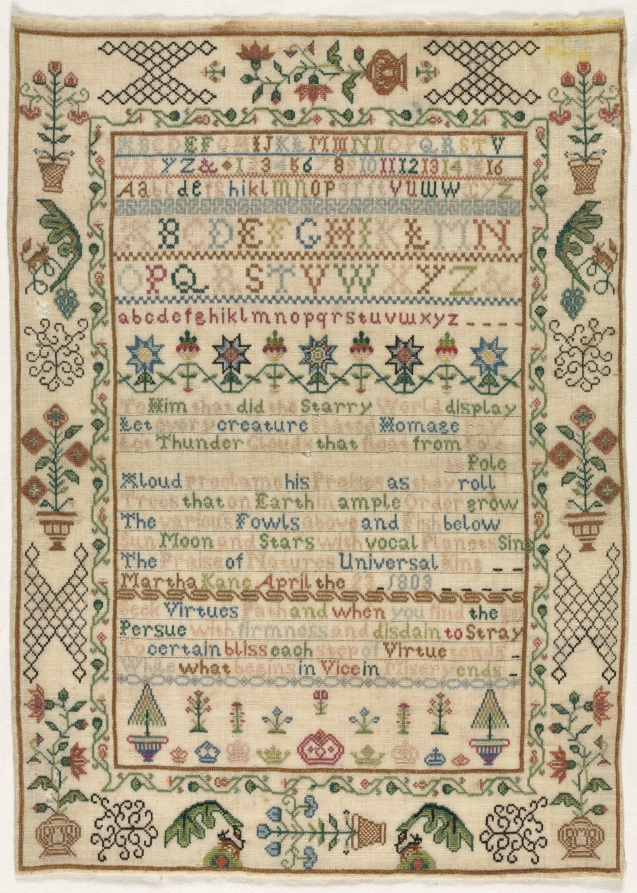 ABCDEFGHIJKLMNOPQRSTV
WXYZ& 1 2 3 4 5 6 7 8 9 10 11 12 13 14 15 16
Aabcdefghiklmnopqrstvuwwxyz
ABCDEFGHIKLMN
OPQRSTVWXYZ&
abcdefghiklmnopqrstuvwxyz
To Him that did the Starry World display
Let every creature Homage pay
Let Thunder Clouds that float from Pole
to Pole
Aloud proclame his Praises as they roll
Trees that on Earth in ample Order grow
The various Fowls above and Fish below
Sun Moon and Stars with vocal Planets Sing
The Praise of Natures Universal King
Martha Kane April the 23 1803
Seek Virtues Path and when you find the
Persue with firmness and disdain to Stray
To certain bliss each step of Virtue tends
While what begins in Vice in Misery ends